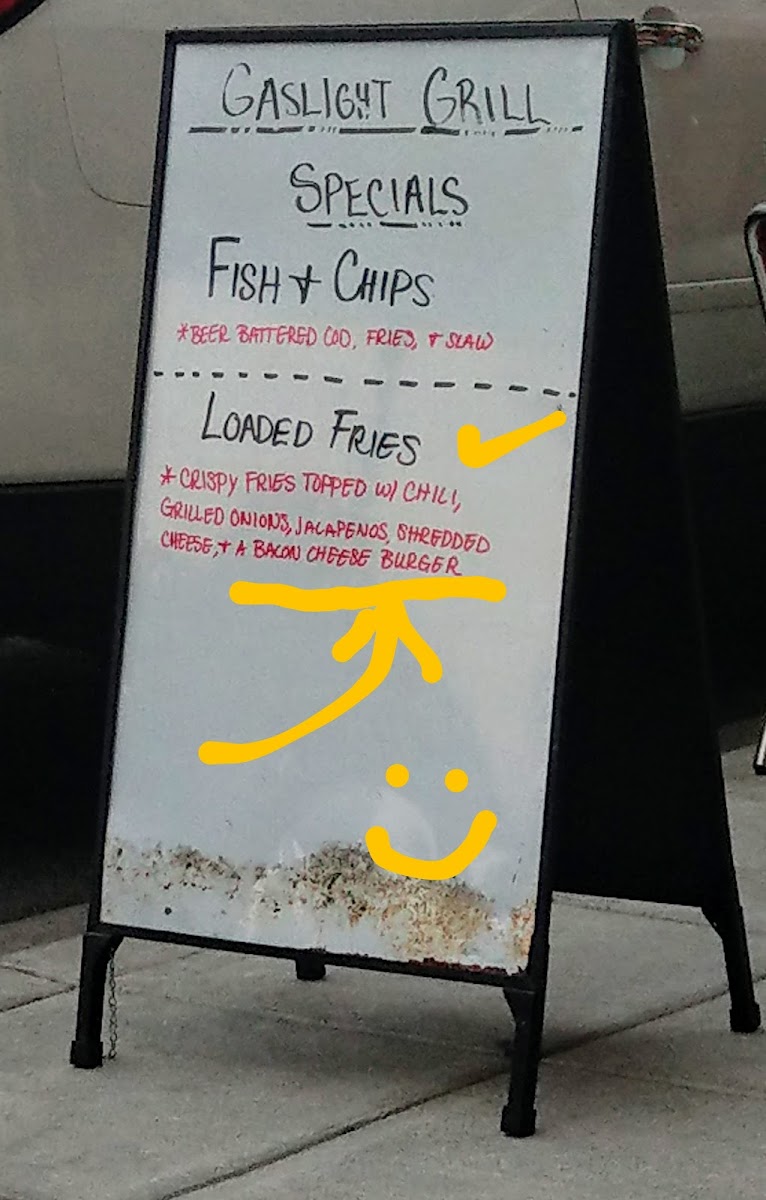 GASLIGHT GRILL
SPECIALS
FISH & CHIPS
*BEER BATTERED COD, FRIES, & SLAW
LOADED FRIES
*CRISPY FRIES TOPPED W/ CHILI,
GRILLED ONIONS, JALAPENOS, SHREDDED
CHEESE, & A BACON CHEESE BURGER